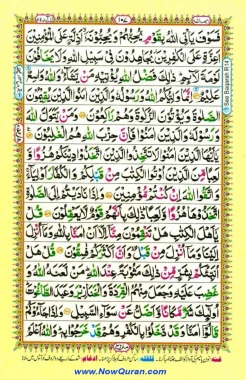 ١٩٧
فَسَوْفَ يَاْتِي اللّٰهُ بِقَوْمٍ يُّحِبُّهُمْ وَيُحِبُّوْنَهٗٓ اَذِلَّةٍ عَلَى الْمُؤْمِنِيْنَ
اَعِزَّةٍ عَلَى الْكٰفِرِيْنَ يُجَاهِدُوْنَ فِيْ سَبِيْلِ اللّٰهِ وَلَا يَخَافُوْنَ
لَوْمَةَ لَآئِمٍ ذٰلِكَ فَضْلُ اللّٰهِ يُؤْتِيْهِ مَنْ يَّشَآءُ وَاللّٰهُ وَاسِعٌ
عَلِيْمٌ اِنَّمَا وَلِيُّكُمُ اللّٰهُ وَرَسُوْلُهٗ وَالَّذِيْنَ اٰمَنُوا الَّذِيْنَ يُقِيْمُوْنَ
الصَّلٰوةَ وَيُؤْتُوْنَ الزَّكٰوةَ وَهُمْ رٰكِعُوْنَ وَمَنْ يَّتَوَلَّ اللّٰهَ
وَرَسُوْلَهٗ وَالَّذِيْنَ اٰمَنُوْا فَاِنَّ حِزْبَ اللّٰهِ هُمُ الْغٰلِبُوْنَ
يٰٓاَيُّهَا الَّذِيْنَ اٰمَنُوْا لَا تَتَّخِذُوا الَّذِيْنَ اتَّخَذُوْا دِيْنَكُمْ هُزُوًا وَّ
لَعِبًا مِّنَ الَّذِيْنَ اُوْتُوا الْكِتٰبَ مِنْ قَبْلِكُمْ وَالْكُفَّارَ اَوْلِيَآءَ
وَاتَّقُوا اللّٰهَ اِنْ كُنْتُمْ مُّؤْمِنِيْنَ وَاِذَا نَادَيْتُمْ اِلَى الصَّلٰوةِ
اتَّخَذُوْهَا هُزُوًا وَّلَعِبًا ذٰلِكَ بِاَنَّهُمْ قَوْمٌ لَّا يَعْقِلُوْنَ قُلْ
يٰٓاَهْلَ الْكِتٰبِ هَلْ تَنْقِمُوْنَ مِنَّآ اِلَّآ اَنْ اٰمَنَّا بِاللّٰهِ وَمَآ اُنْزِلَ
اِلَيْنَا وَمَآ اُنْزِلَ مِنْ قَبْلُ وَاَنَّ اَكْثَرَكُمْ فٰسِقُوْنَ قُلْ هَلْ
اُنَبِّئُكُمْ بِشَرٍّ مِّنْ ذٰلِكَ مَثُوْبَةً عِنْدَ اللّٰهِ مَنْ لَّعَنَهُ اللّٰهُ وَ
غَضِبَ عَلَيْهِ وَجَعَلَ مِنْهُمُ الْقِرَدَةَ وَالْخَنَازِيْرَ وَعَبَدَ الطَّاغُوْتَ
اُولٰٓئِكَ شَرٌّ مَّكَانًا وَّاَضَلُّ عَنْ سَوَآءِ السَّبِيْلِ وَاِذَا جَآءُوْكُمْ
قَالُوْٓا اٰمَنَّا وَقَدْ دَّخَلُوْا بِالْكُفْرِ وَهُمْ قَدْ خَرَجُوْا بِهٖ وَاللّٰهُ
See Baqarah R 14
www.NowQuran.com